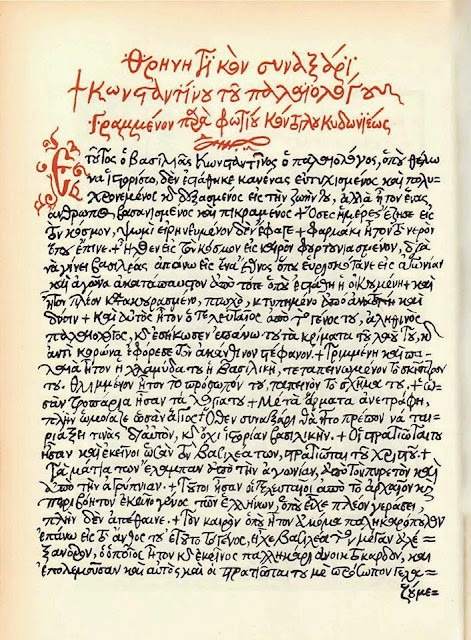 Θρηνητικὸν συναξάρι
+ Κωνσταντίνου τοῦ Παλαιολόγου
Γραμμένον παρὰ Φωτίου Κόντογλου Κυδωνιέως
Ἐτοῦτος ὁ βασιλιᾶς Κωνσταντῖνος ὁ Παλαιολόγος, ὁποῦ θέλω
νὰ ἱστορίσω, δὲν ἐστάθηκε κανένας εὐτυχισμένος καὶ πολυ-
χρονεμένος κὶ δοξασμένος εἰς τὴν ζωήν του, ἀλλὰ ἤτον ἕνας
ἄνθρωπος βασανισμένος καὶ πικραμένος + Ὅσες ἡμέρες ἔζησε εἰς
τὸν κόσμον, ψωμὶ εἰρηνευμένον δὲν ἔφαγε + φαρμάκι ἤτον τὸ νερὸ
ὁποῦ ἔπινε + Ἦλθεν εἰς τὸν κόσμον εἰς καιρὸν φορτουνιασμένον, διὰ
νὰ γίνει βασιλέας ἀπάνω εἰς ἕνα ἔθνος ὁποῦ εὑρισκότανε εἰς ἀγωνίαν
καὶ ἀγῶνα ἀκατάπαυστον ἀπὸ τότε ὁποῦ ἐστάθη ἡ οἰκουμένη καὶ
ἤτον πλέον κατακουρασμένο, πτωχό, κτυπημένο ἀπὸ ἀνατολὴ καὶ
δύσιν + Καὶ αὐτὸς ἤτον ὁ τελευταῖος ἀπὸ τὸ γένος του, ἀληθινὸς
παλαιολόγος, κὶ ἐσήκωσεν ἐπάνω του τὰ κρίματα τοῦ λαοῦ του, κὶ
ἀντὶ κορώνα ἐφόρεσε τὸν ἀκάνθινον στέφανον + Τριμμένη καὶ πα-
λαιὰ ἤτον ἡ χλαμύδα του ἡ βασιλική, τεταπεινωμένον τὸ σκῆπτρον
του. Θλιμμένον ἤτον τὸ πρόσωπόν του, ταπεινὸν τὸ σχῆμα του + ὡ-
σὰν τροπάρια ἤσαν τὰ λόγια του + Μὲ τὰ ἄρματα ἀνετράφη,
πλὴν ὡμοίαζε ὡσὰν ἅγιος + Ὅθεν συναξάρι θὰ ἤτο πρέπον νὰ ται-
ριάξει τινὰς δι᾽ αὐτόν, κὶ ὄχι ἱστορίαν βασιλικήν + Οἱ στρατιῶται του
ἤσαν καὶ ἐκεῖνοι ὡσὰν τὸν βασιλέα των, στρατιῶται τοῦ Χριστοῦ +
Τὰ μάτια των ἔλαμπαν ἀπὸ τὴν ἀγωνίαν, ἀπὸ τὸν πυρετὸν καὶ
ἀπὸ τὴν ἀγρύπνιαν + Τοῦτοι ἤσαν οἱ τελευταῖοι ἀπὸ τὸ ἀρχαῖον κὶ
περιβόητον ἐκεῖνο γένος τῶν ἑλλήνων, ὁποῦ εἶχε πλέον γεράσει,
πλὴν δὲν ἀπέθαινε + Τὸν καιρὸν ὁποῦ ἤτον ἀκόμα παληκαρόπουλον
ἐπάνω εἰς τὸ ἄνθος του ἐτοῦτο τὸ γένος, εἶχε βασιλέα τὸν μέγαν ἀλέ-
ξανδρον, ὁ ὁποῖος ἤτον κὶ ἐκεῖνος παλληκάρι ἀνοικτόκαρδον, καὶ
ἐπολεμοῦσαν καὶ αὐτὸς καὶ οἱ στρατιῶται του μὲ πρόσωπον γελα=
ζούμε=